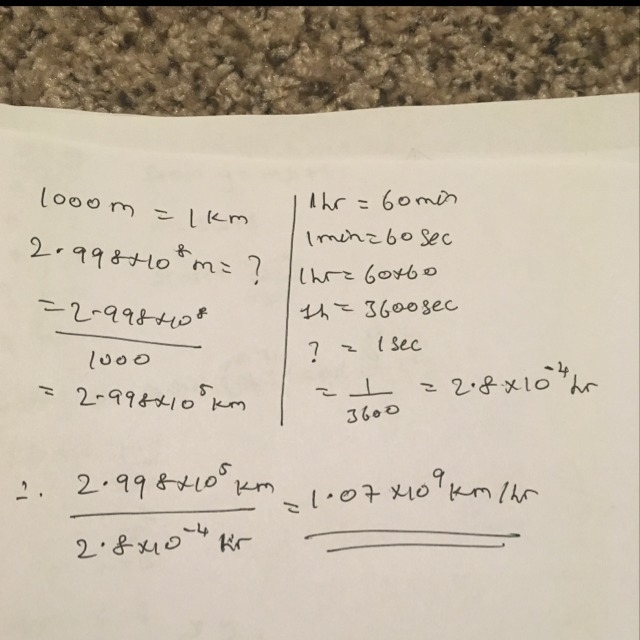 1000 m = 1 Km
2.998×10⁸ m = ?
= 2.998×10⁸
1000
= 2.998×10⁵ km
1hr = 60 min
1min = 60 sec
1hr = 60×60
1h = 3600 sec
? = 1 sec
= 1/3600 = 2.8×10⁻⁴ hr
∴ 2.998×10⁵ km
2.8×10⁻⁴ hr
= 1.07×10⁹ km/hr